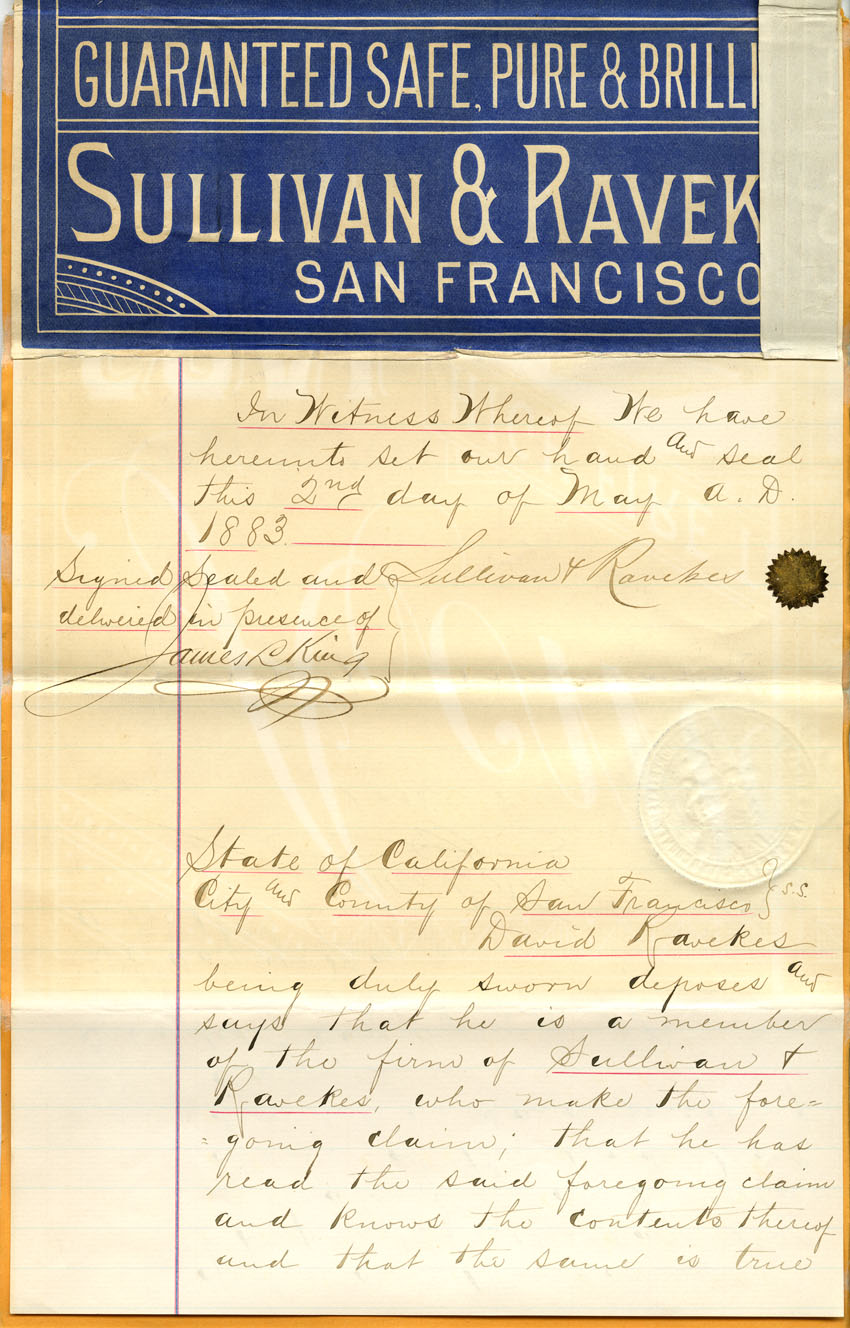 GUARANTEED SAFE, PURE & BRILLI
SULLIVAN & RAVEK
SAN FRANCISCO
In Witness Whereof We have
hereunto set our hand and seal
this 2nd day of May A.D.
1883.
Signed Sealed and
delivered in presence of
James L King
Sullivan & Ravekes
State of California
City and County of San Francisco } s.s.
David Ravekes
being duly sworn deposes and
says that he is a member
of the firm of Sullivan &
Ravekes, who make the fore=
=going claim; that he has
read the said foregoing claim
and knows the contents thereof
and that the same is true